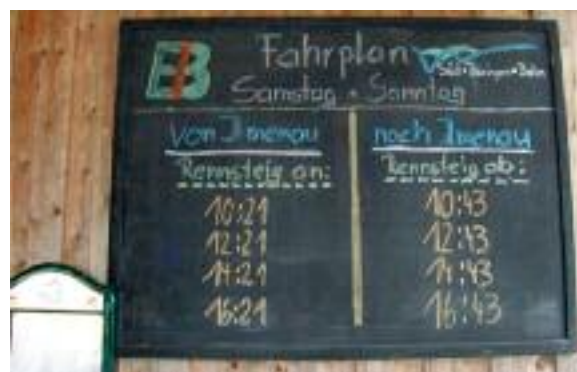 EB
Fahrplan
Süd•Thüringen•Bahn
Samstag • Sonntag
Von Ilmenau
Rennsteig an:
10:21
12:21
14:21
16:21
nach Ilmenau
Rennsteig ab:
10:43
12:43
14:43
16:43